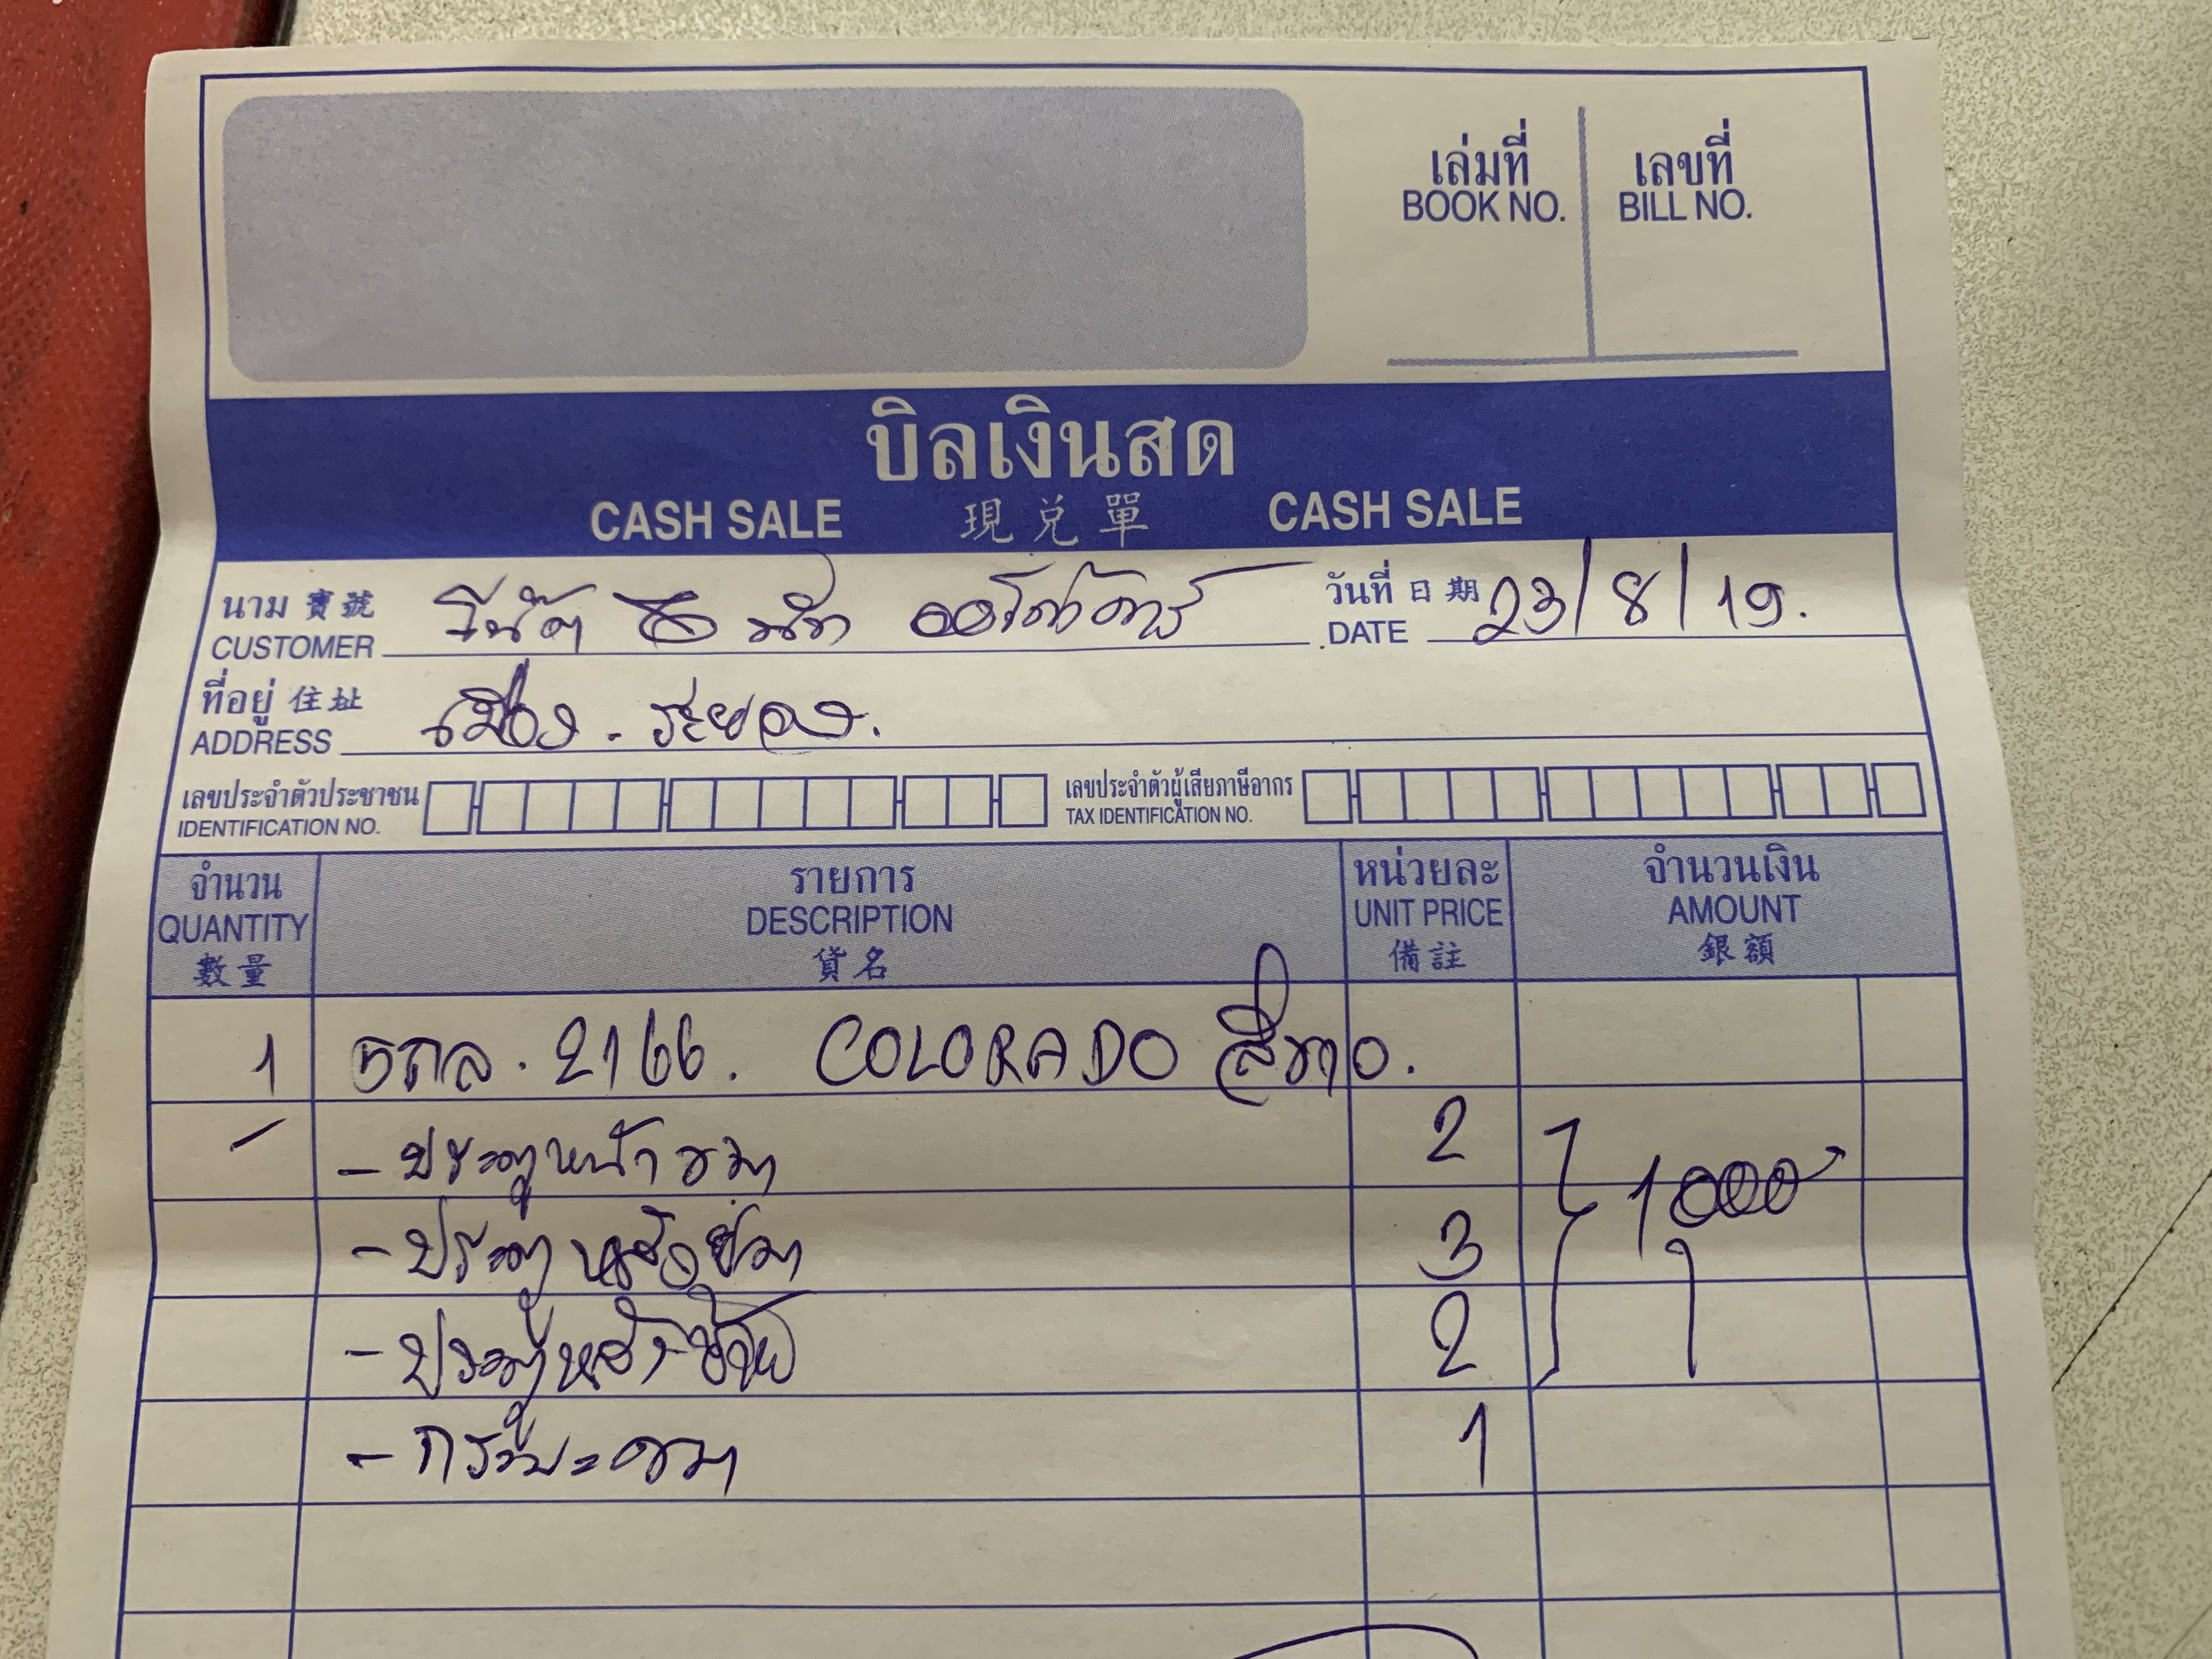 เล่มที่ เลขที่
BOOK NO. BILL NO.
บิลเงินสด
CASH SALE 現兌單 CASH SALE
นาม 寶號 วันที่ 日期 23/8/19.
CUSTOMER DATE
ที่อยู่ 住址 เมือง. ระยอง.
ADDRESS
เลขประจำตัวประชาชน เลขประจำตัวผู้เสียภาษีอากร
IDENTIFICATION NO. TAX IDENTIFICATION NO.
จำนวน รายการ หน่วยละ จำนวนเงิน
QUANTITY DESCRIPTION UNIT PRICE AMOUNT
數量 貨名 備註 銀額
1 2166. COLORADO สีขาว.
- ประตูหน้าขวา 2 1000
- ประตูหลังขวา 3
- ประตูหลังซ้าย 2
- กระบะขวา 1